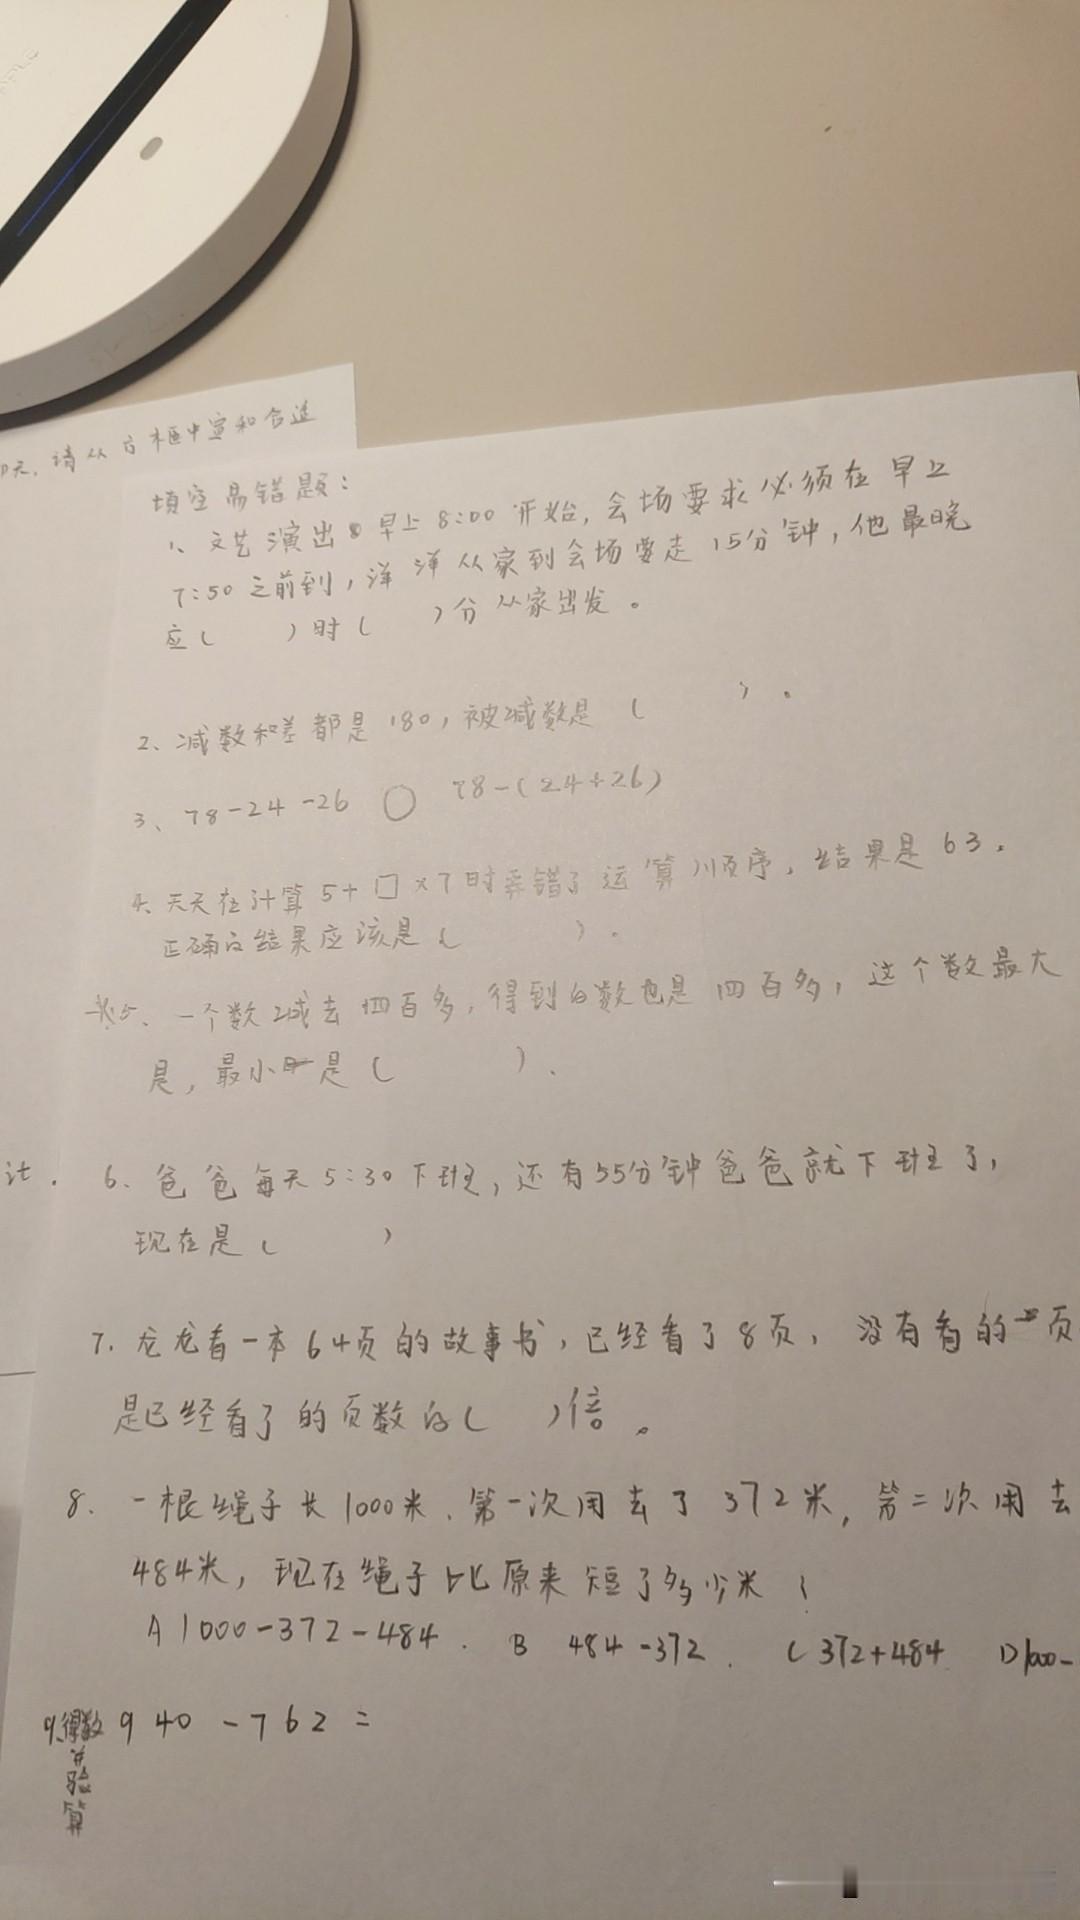 天，请从方框中宣和合适
填空易错题：
1、文艺演出早上8:00开始，会场要求必须在早上
7:50之前到，洋洋从家到会场要走15分钟，他最晚
应（ ）时（ ）分从家出发。
2、减数和差都是180，被减数是（ ）。
3、78-24-26 ○ 78-(24+26)
4、天天在计算5+□×7时弄错了运算顺序，结果是63，
正确的结果应该是（ ）。
5、一个数减去四百多，得到的数也是四百多，这个数最大
是，最小是（ ）.
计.
6、爸爸每天5:30下班，还有55分钟爸爸就下班了，
现在是（ ）
7.龙龙看一本64页的故事书，已经看了8页，没有看的页
是已经看了的页数的（ ）倍。
8.一根绳子长1000米.第一次用去了372米，第二次用去
484米，现在绳子比原来短了多少米
A 1000-372-484. B 484-372. C 372+484 D 1000-
9、得数并验算 940-762=